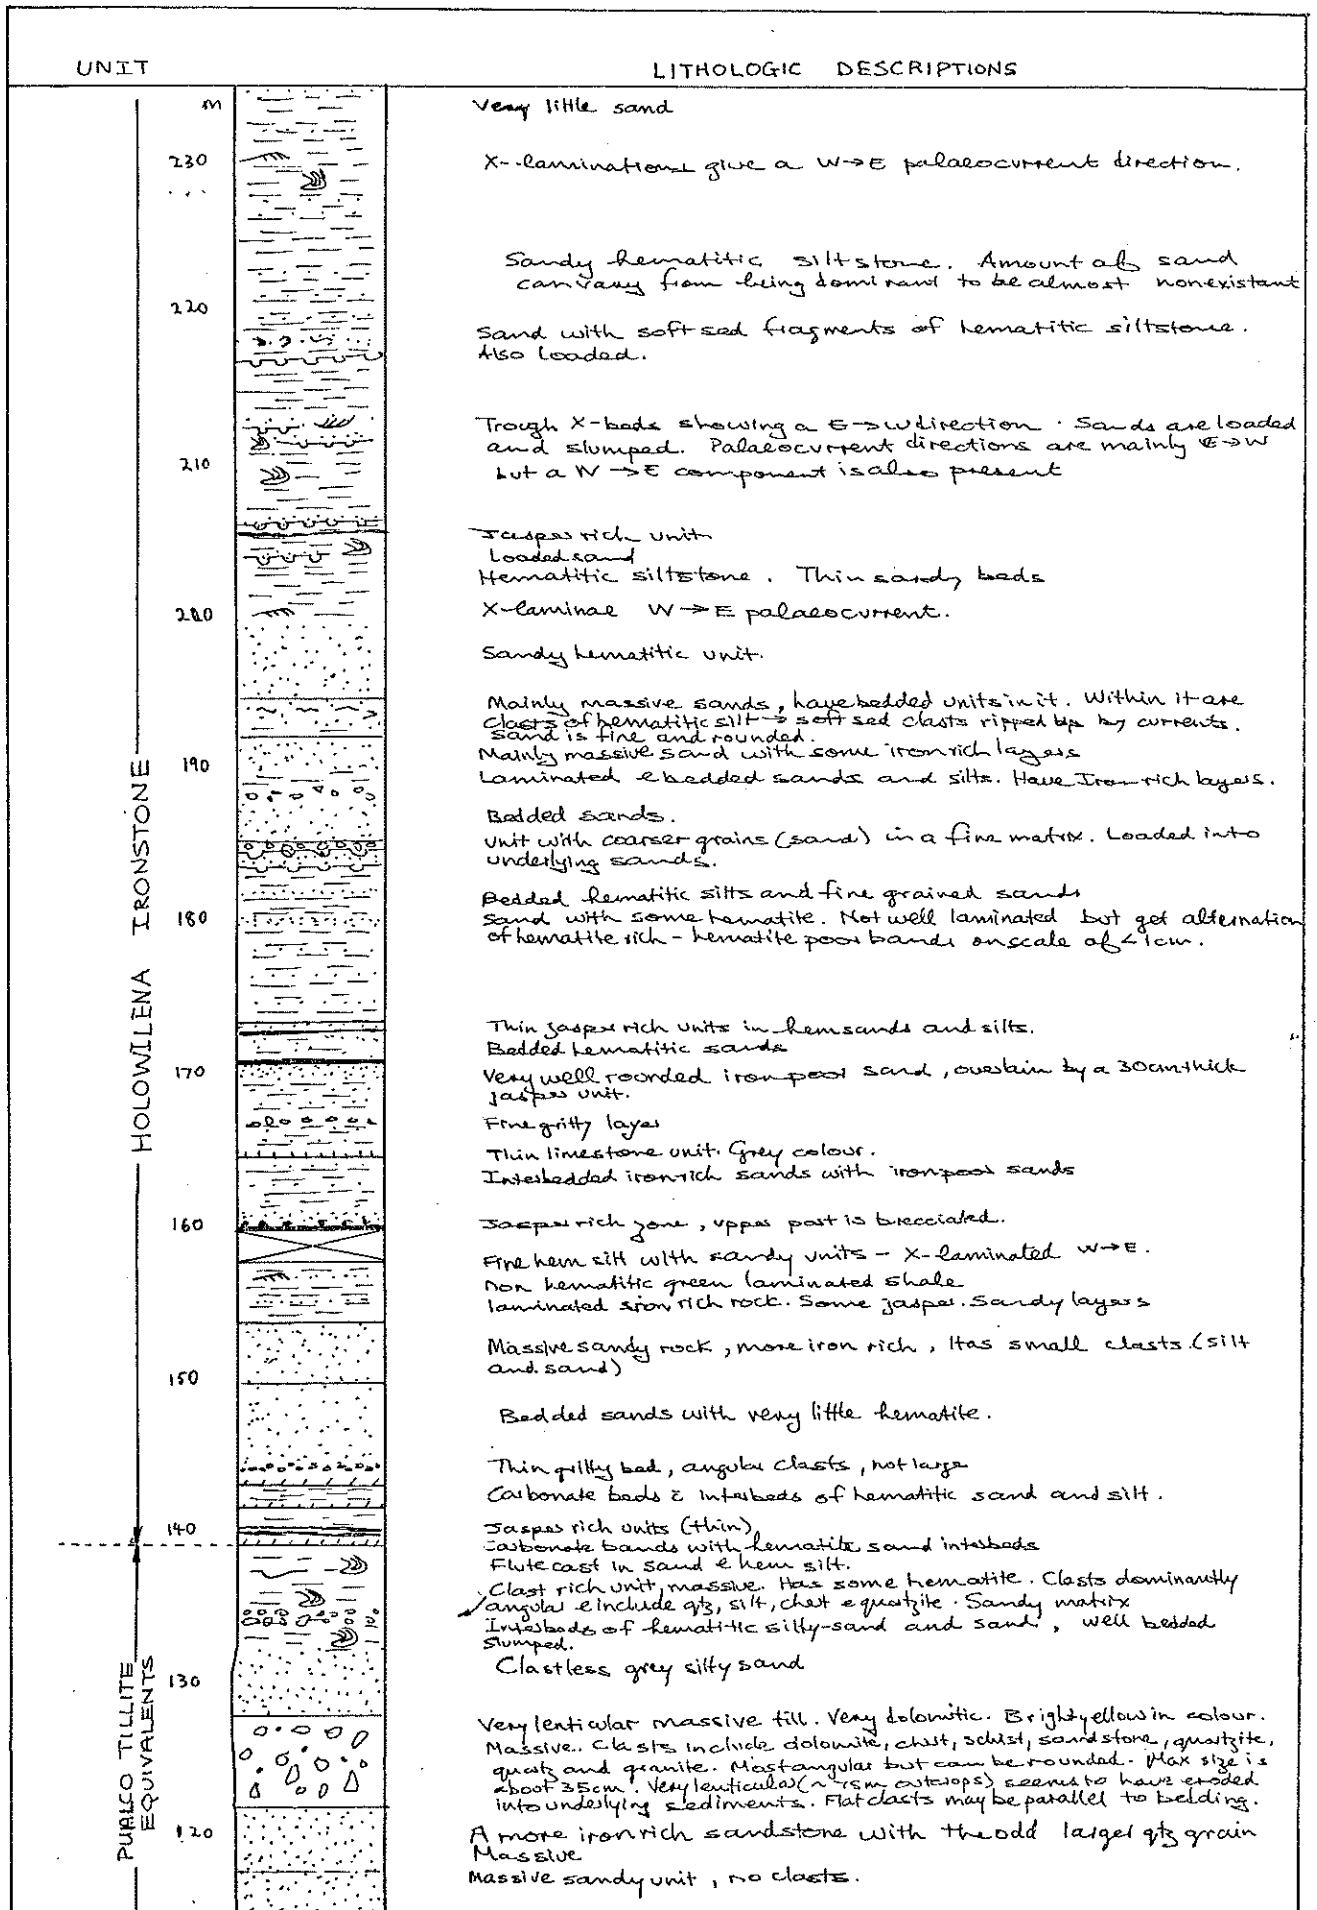 UNIT
LITHOLOGIC DESCRIPTIONS
m
Very little sand
230
X--laminations give a W→E palaeocurrent direction.
Sandy hematitic siltstone. Amount of sand
can vary from being dominant to be almost nonexistant
220
Sand with soft sed fragments of hematitic siltstone.
Also loaded.
Trough X-beds showing a E→W direction. Sands are loaded
and slumped. Palaeocurrent directions are mainly E→W
but a W→E component is also present
210
Jasper rich unit
Loaded sand
Hematitic siltstone. Thin sandy beds
200
X-laminae W→E palaeocurrent.
Sandy hematitic unit.
Mainly massive sands, have bedded units in it. Within it are
clasts of hematitic silt → soft sed clasts ripped up by currents.
Sand is fine and rounded.
Mainly massive sand with some iron rich layers
190
Laminated & bedded sands and silts. Have Iron-rich layers.
Bedded sands.
Unit with coarser grains (sand) in a fine matrix. Loaded into
underlying sands.
Bedded hematitic silts and fine grained sands
180
Sand with some hematite. Not well laminated but get alternation
of hematite rich - hematite poor bands on scale of <1cm.
Thin jasper rich units in hem sands and silts.
Bedded hematitic sands
170
Very well rounded iron poor sand, overlain by a 30cm thick
jasper unit.
Fine gritty layer
Thin limestone unit. Grey colour.
Interbedded iron rich sands with iron poor sands
160
Jasper rich zone, upper part is brecciated.
Fine hem silt with sandy units - X-laminated W→E.
Non hematitic green laminated shale
laminated iron rich rock. Some jasper. Sandy layers
Massive sandy rock, more iron rich, Has small clasts (silt
and sand)
150
Bedded sands with very little hematite.
Thin gritty bed, angular clasts, not large
Carbonate beds & interbeds of hematitic sand and silt.
140
Jasper rich units (thin)
Carbonate bands with hematite sand interbeds
Flute cast in sand & hem silt.
Clast rich unit, massive. Has some hematite. Clasts dominantly
angular & include qtz, silt, chert & quartzite. Sandy matrix
Interbeds of hematitic silty-sand and sand, well bedded
Slumped.
Clastless grey silty sand
130
Very lenticular massive till. Very dolomitic. Bright yellow in colour.
Massive. Clasts include dolomite, chert, schist, sandstone, quartzite,
quartz and granite. Most angular but can be rounded. Max size is
about 35cm. Very lenticular (~ 15m outcrops) seems to have eroded
into underlying sediments. Flat clasts may be parallel to bedding.
120
A more iron rich sandstone with the odd larger qtz grain
Massive
Massive sandy unit, no clasts.
HOLOWILENA IRONSTONE
PUALCO TILLITE
EQUIVALENTS